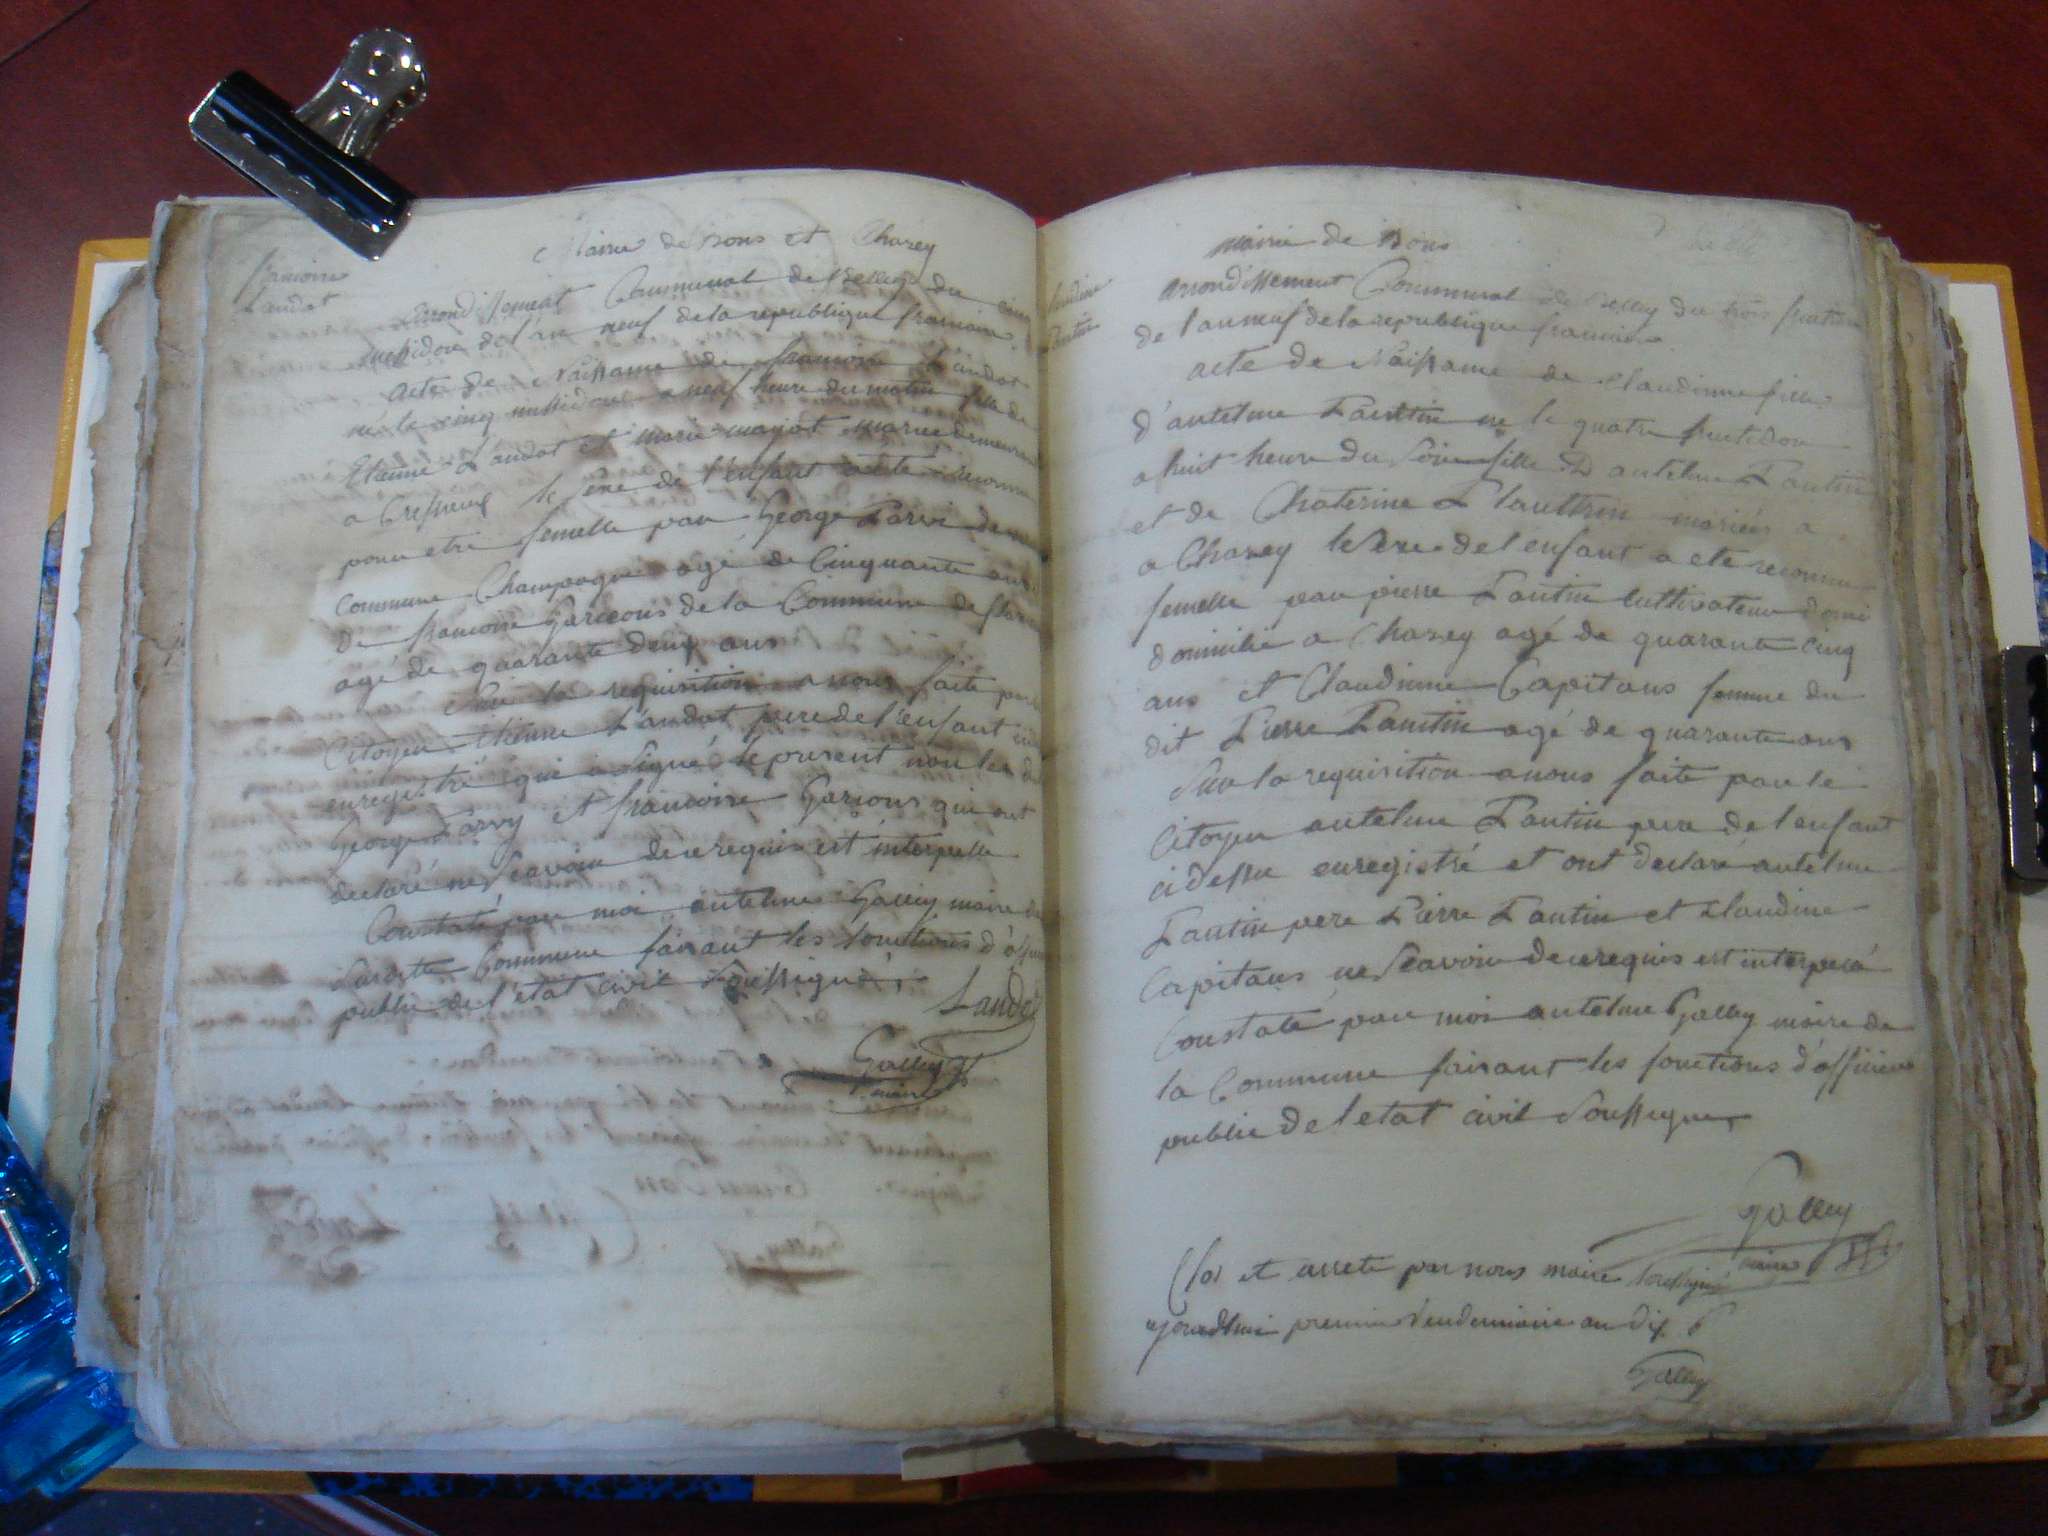 Mairie de Bons et Chazey
francoise
Landot
Arrondissement Communal de Belley du cinq
messidor de l'an neuf de la republique francaise
acte de Naissance de francoise Landot
né le cinq messidor a neuf heure du matin fille de
Etienne Landot et marie mayot mariee demeurant
a Cressieux le sexe de l'enfant a eté reconnu
pour etre femelle par George Parvi de
commune Champagne agé de Cinquante ans
de francoise Garceons de la Commune de
agé de quarante deux ans
Sur la requisition a nous faite par
Citoyen etienne Landot pere de l'enfant
enregistré qui a Signé le present non les
George Parvy et francoise Garsons qui ont
declaré ne Scavoir de ce requis est interpelle
Constaté par moi antelme Galley maire de
Laditte Commune faisant les fonctions d'
public de l'etat civil Soussigné,
Landot
Galley
maire
mairie de Bons
arrondissement Communal de Belley du trois fructidor
de l'an neuf de la republique francaise
acte de Naissance de Claudinne fille
d'antelme Pantin ne le quatre fructidor
a huit heure du Soir fille D antelme Pantin
et de Chaterine mariés a
a Chazey le Sexe de l enfant a ete reconnu
femelle par pierre Pantin cultivateur domi
domicilié a Chazey agé de quarante cinq
ans et Claudinne Capitans femme du
dit Pierre Pantin agé de quarante ans
Sur la requisition a nous faite par le
Citoyen antelme Pantin pere de l enfant
ci dessu enregistré et ont declaré antelme
Pantin pere Pierre Pantin et Claudine
Capitans ne Scavoir de ce requis est interpelé
Constaté par moi antelme Galley maire de
la Commune faisant les fonctions d'officier
public de l etat civil Soussigné,
Galley
maire
Clos et arreté par nous maire soussigné
ajourdhui premier Vendemiaire an dix
Galley